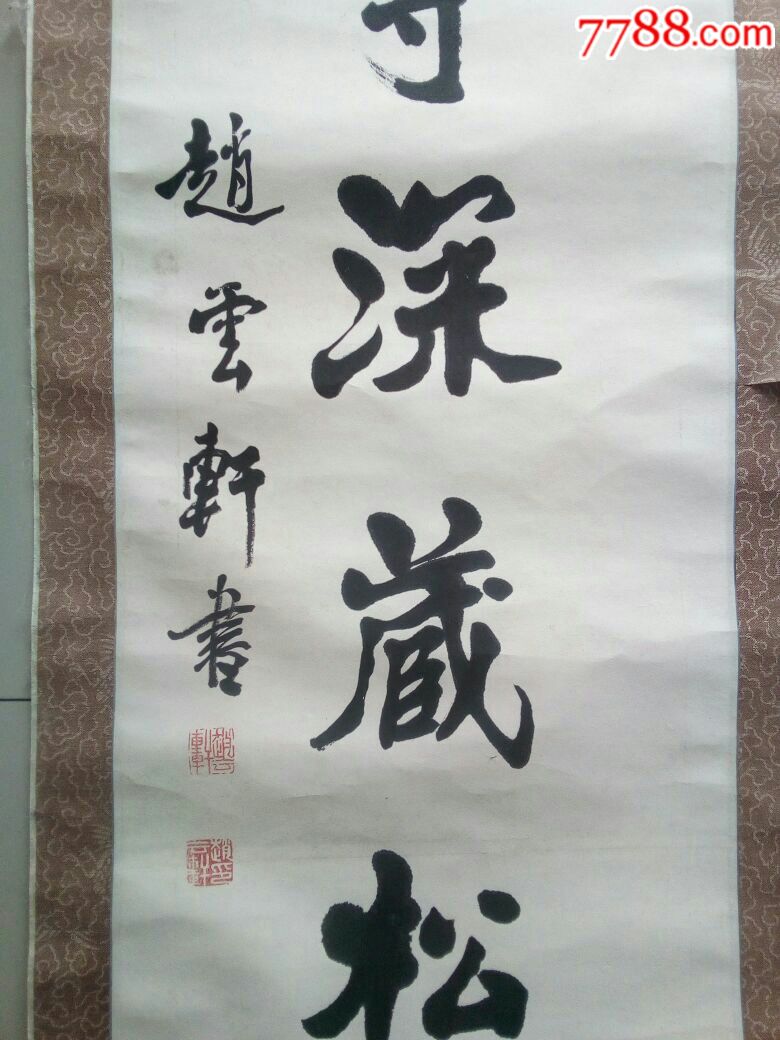 7788.com
寺深藏松
趙雲軒書